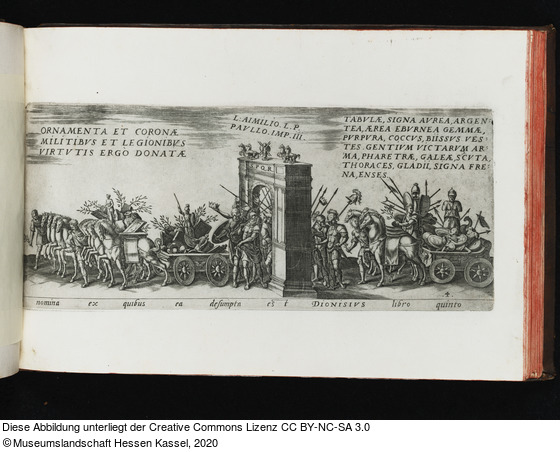 ORNAMENTA ET CORONÆ
MILITIBVS ET LEGIONIBVS
VIRTVTIS ERGO DONATÆ
L. AIMILIO. L. P.
PAVLLO. IMP. III.
TABVLÆ, SIGNA AVREA, ARGEN
TEA, ÆREA EBVRNEA GEMMÆ,
PVRPVRA, COCCVS, BIISSVS. VES
TES. GENTIVM VICTARVM AR
MA, PHARETRÆ, GALEÆ, SCVTA,
THORACES, GLADII, SIGNA FRE
NA, ENSES.
nomina ex quibus ea desumpta est DIONISIVS libro quinto
4.
Diese Abbildung unterliegt der Creative Commons Lizenz CC BY-NC-SA 3.0
© Museumslandschaft Hessen Kassel, 2020